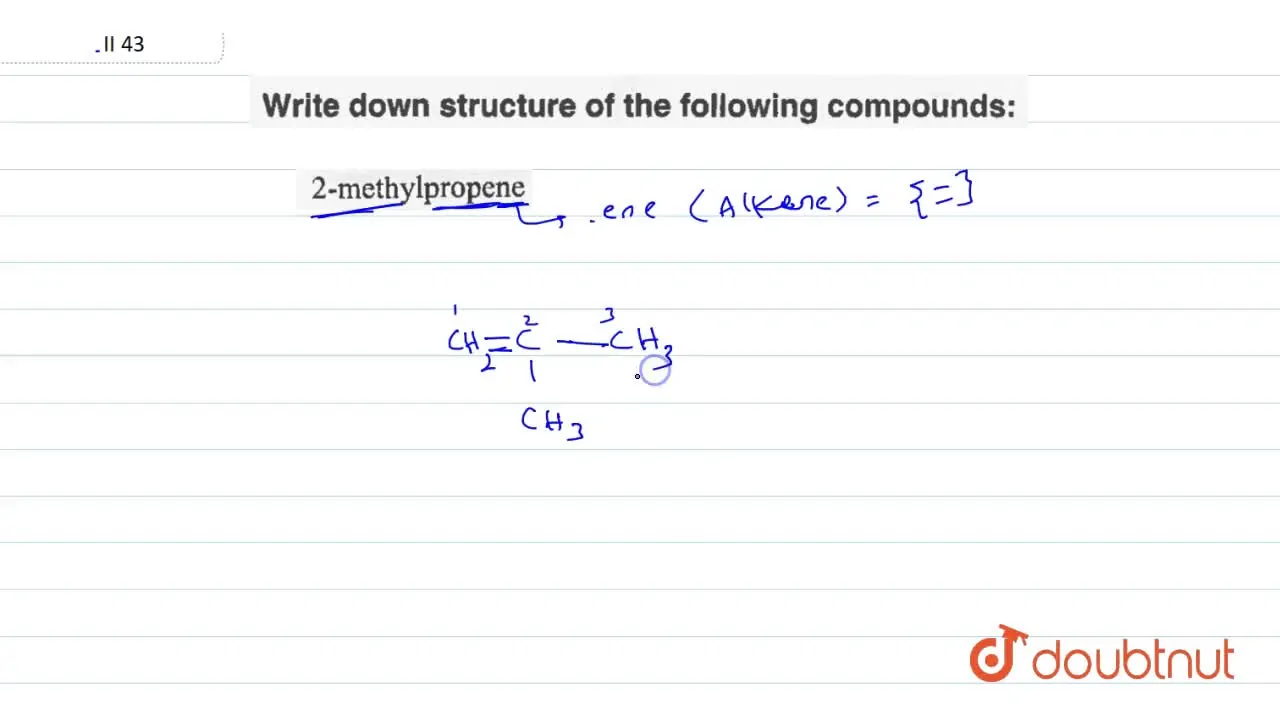 .II 43
Write down structure of the following compounds:
2-methylpropene
.ene (Alkene) = {=}
1 2 3
CH2=C—CH3
|
CH3
doubtnut